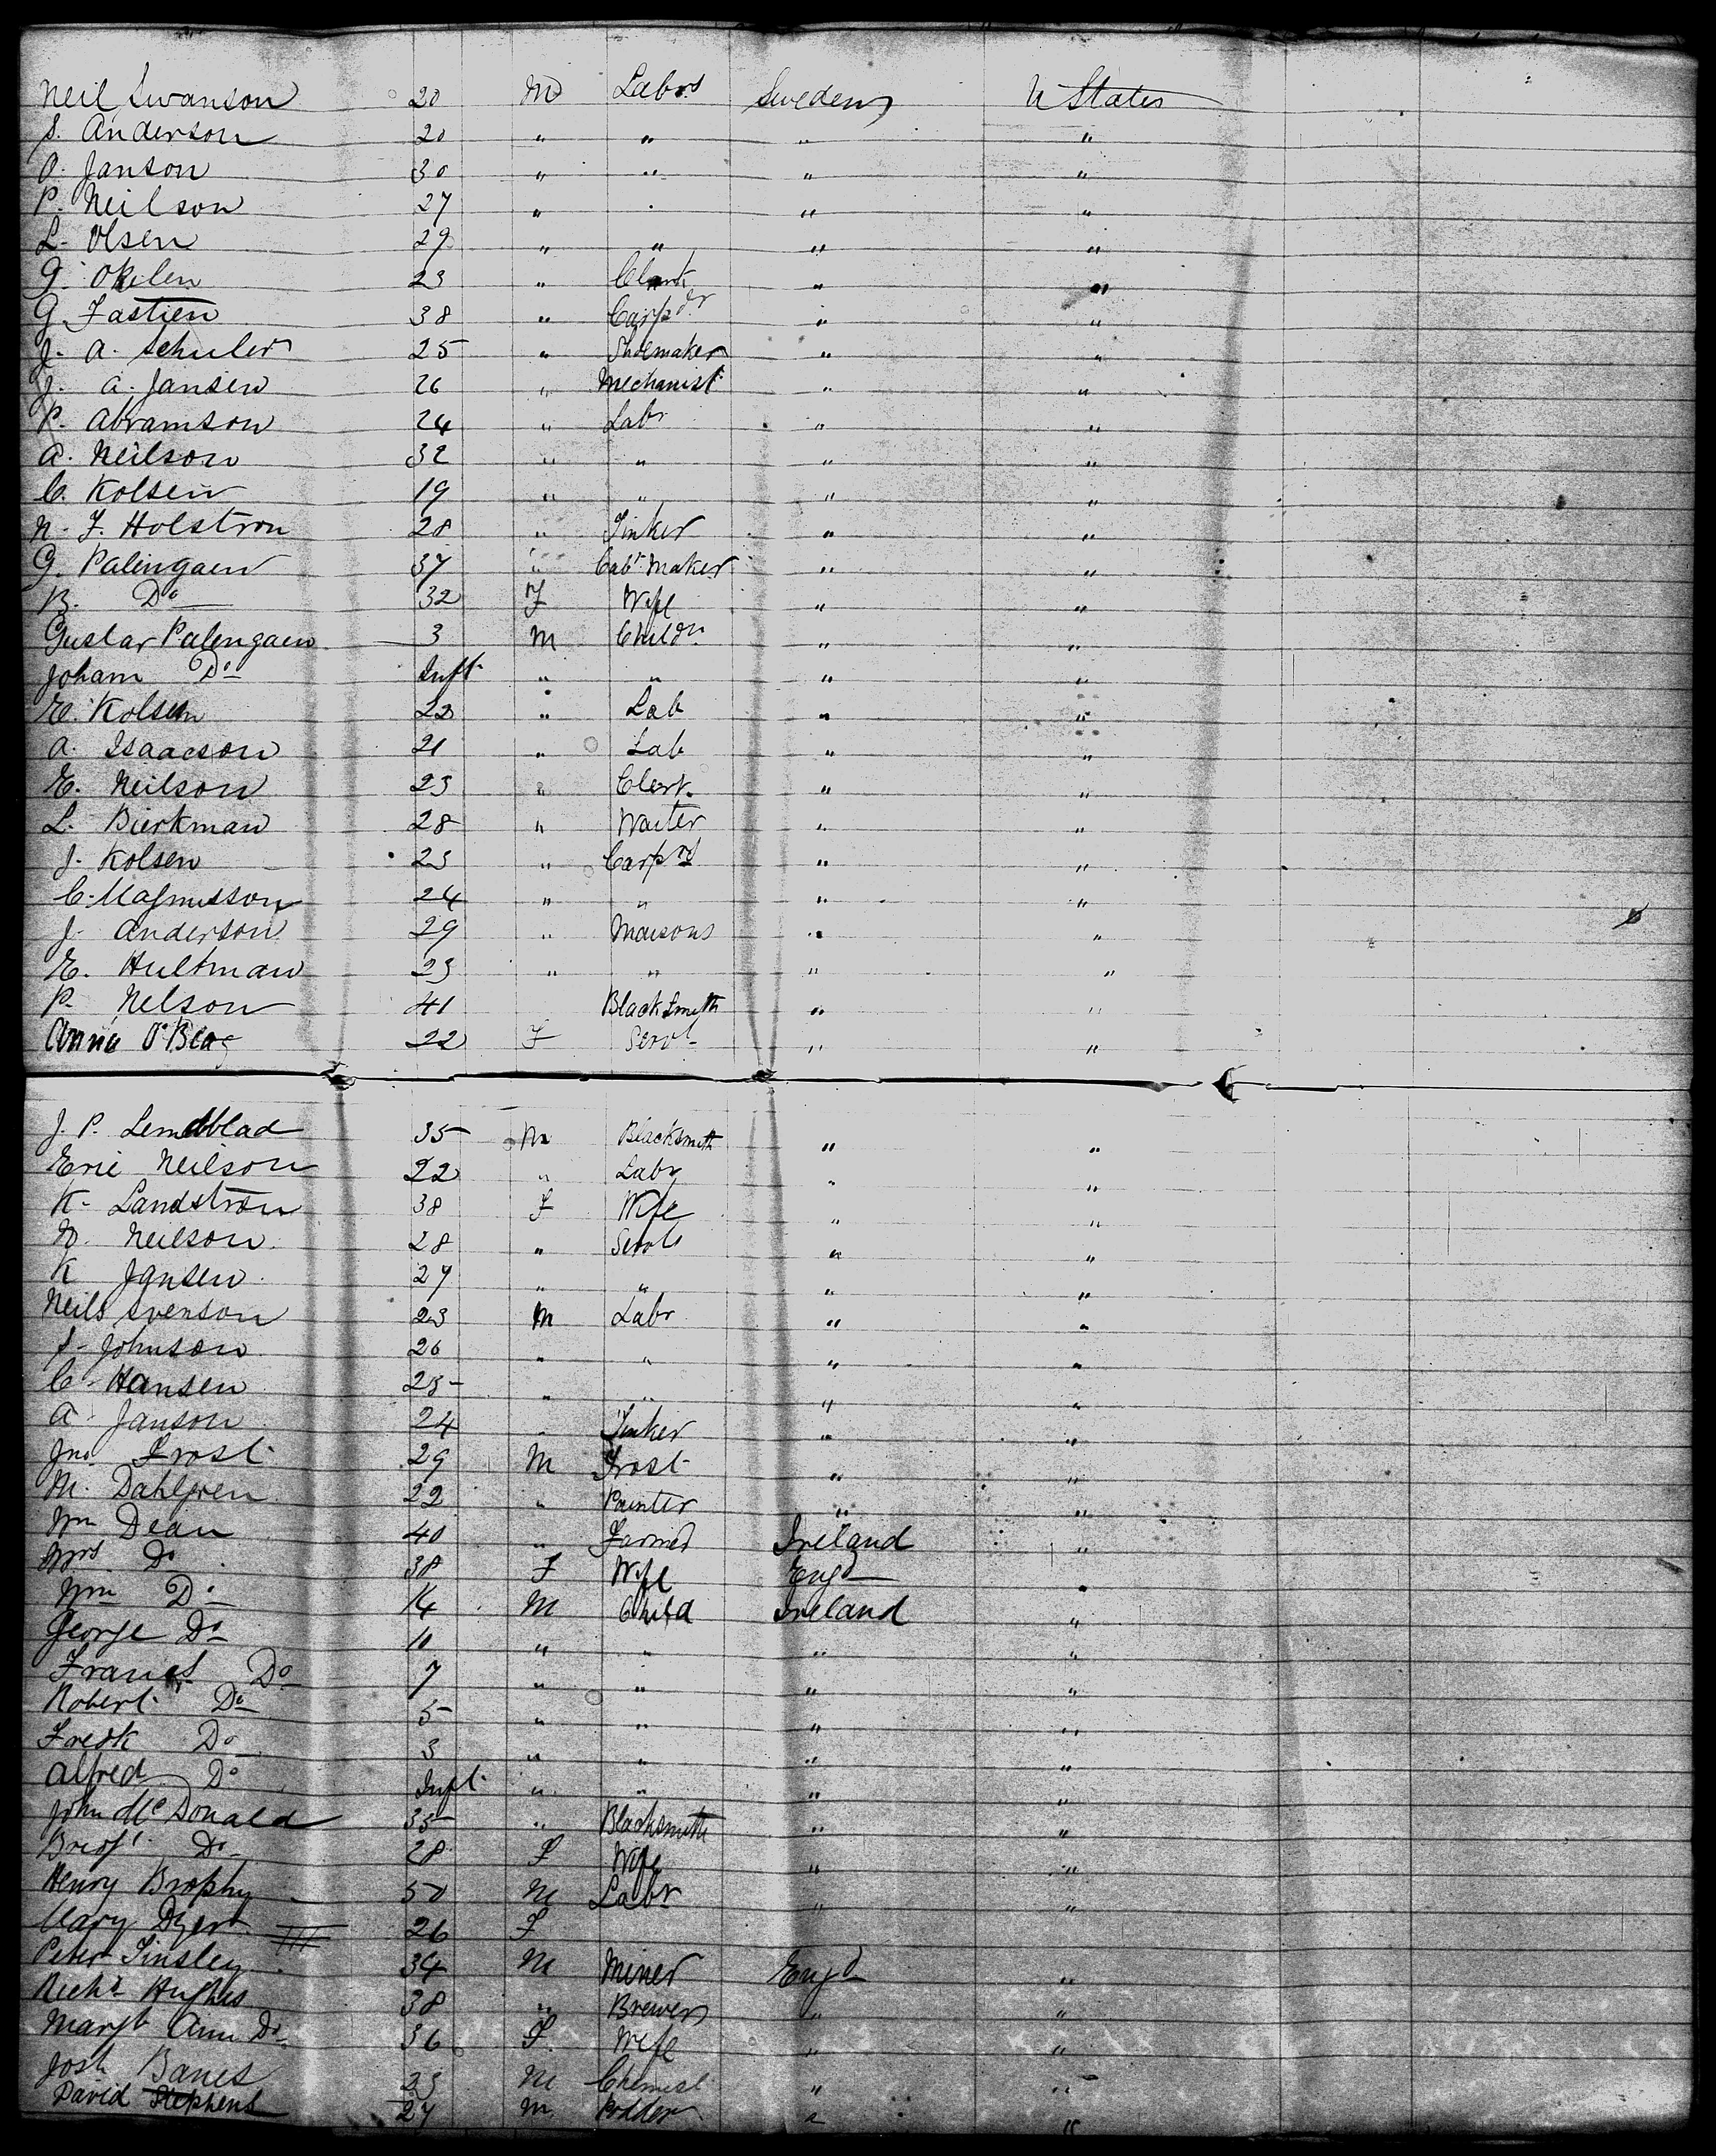 Neil Swanson 20 M Labrs Sweden U States
S. Anderson 20 " " " "
O. Janson 30 " " " "
P. Neilson 27 " " " "
L. Olsen 29 " " " "
G. 23 " Clerk " "
G. Fastien 38 " Carpdr " "
J. A. Schuler 25 " Shoemaker " "
J. A. Jansen 26 " Mechanist " "
P. Abramson 24 " Labr " "
A. Neilson 32 " " " "
C. Kolsen 19 " " " "
N. F. Holstron 28 " Tinker " "
G. Palingaen 37 " Cabt Maker " "
B. Do 32 F Wife " "
Gustav Palengaen 3 M Childn " "
Joham Do Inft " " " "
E. Kolsen 22 " Lab " "
A. Isaacson 21 " Lab " "
E. Neilson 23 " Clerk " "
L. Bierkman 28 " Waiter " "
J. Kolsen 23 " Carprs " "
C. Magnusson 24 " " " "
J. Anderson 29 " Maisons " "
E. Hultman 23 " " " "
P. Nelson 41 Black Smith " "
Annie 22 F Servt " "
J. P. Lendblad 35 M Blacksmith " "
Eric Neilson 22 " Labr " "
K. Landstron 38 F Wife " "
N. Neilson 28 " Servts " "
K Jansen 27 " " " "
Neils Svenson 23 M Labr " "
S. Johnson 26 " " " "
C. Hansen 25 " " " "
A. Janson 24 " Tinker " "
Jno. Frost 29 M Frost " "
M. Dahlgren 22 " Painter " "
Wm Dean 40 " Farmer Ireland "
Mrs Do 38 F Wife Engd "
Wm Do 14 M Child Ireland "
George Do 10 " " " "
Francis Do 7 " " " "
Robert Do 5 " " " "
Fredk Do 3 " " " "
Alfred Do Inft " " " "
John McDonald 35 " Blacksmith " "
Bridgt Do 28 F Wife " "
Henry Brophy 50 M Labr " "
Mary Dyer 26 F
Peter Tinsley 34 M Miner Engd "
Richd Hughes 38 " Brewer " "
Margt Ann Do 36 F. Wife " "
Josh Banes 23 M Chemist " "
David Stephens 27 M " "